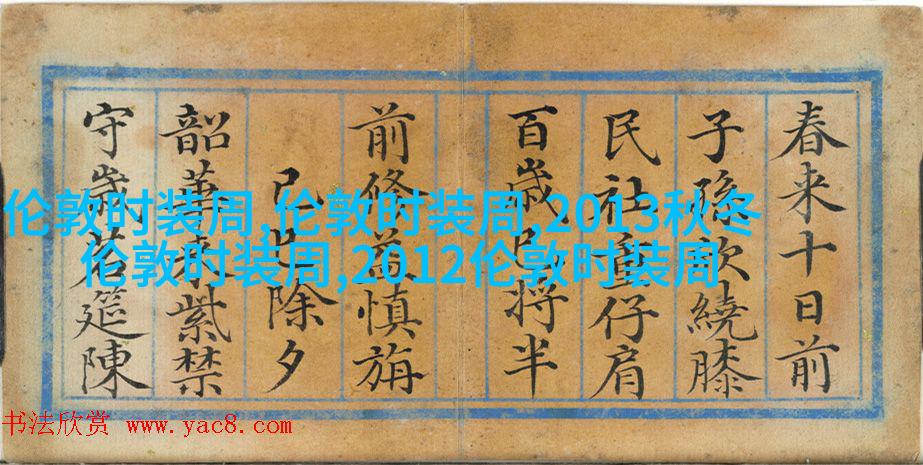 春来十日前
子孫欣繞膝
民社重仔肩
百歲已將半
前修益慎旃
己巳除夕
韶華来紫禁
守歲茗筵陳
伦敦时装周,伦敦时装周,2013秋冬
伦敦时装周,2012伦敦时装周
书法欣赏 www.yac8.com